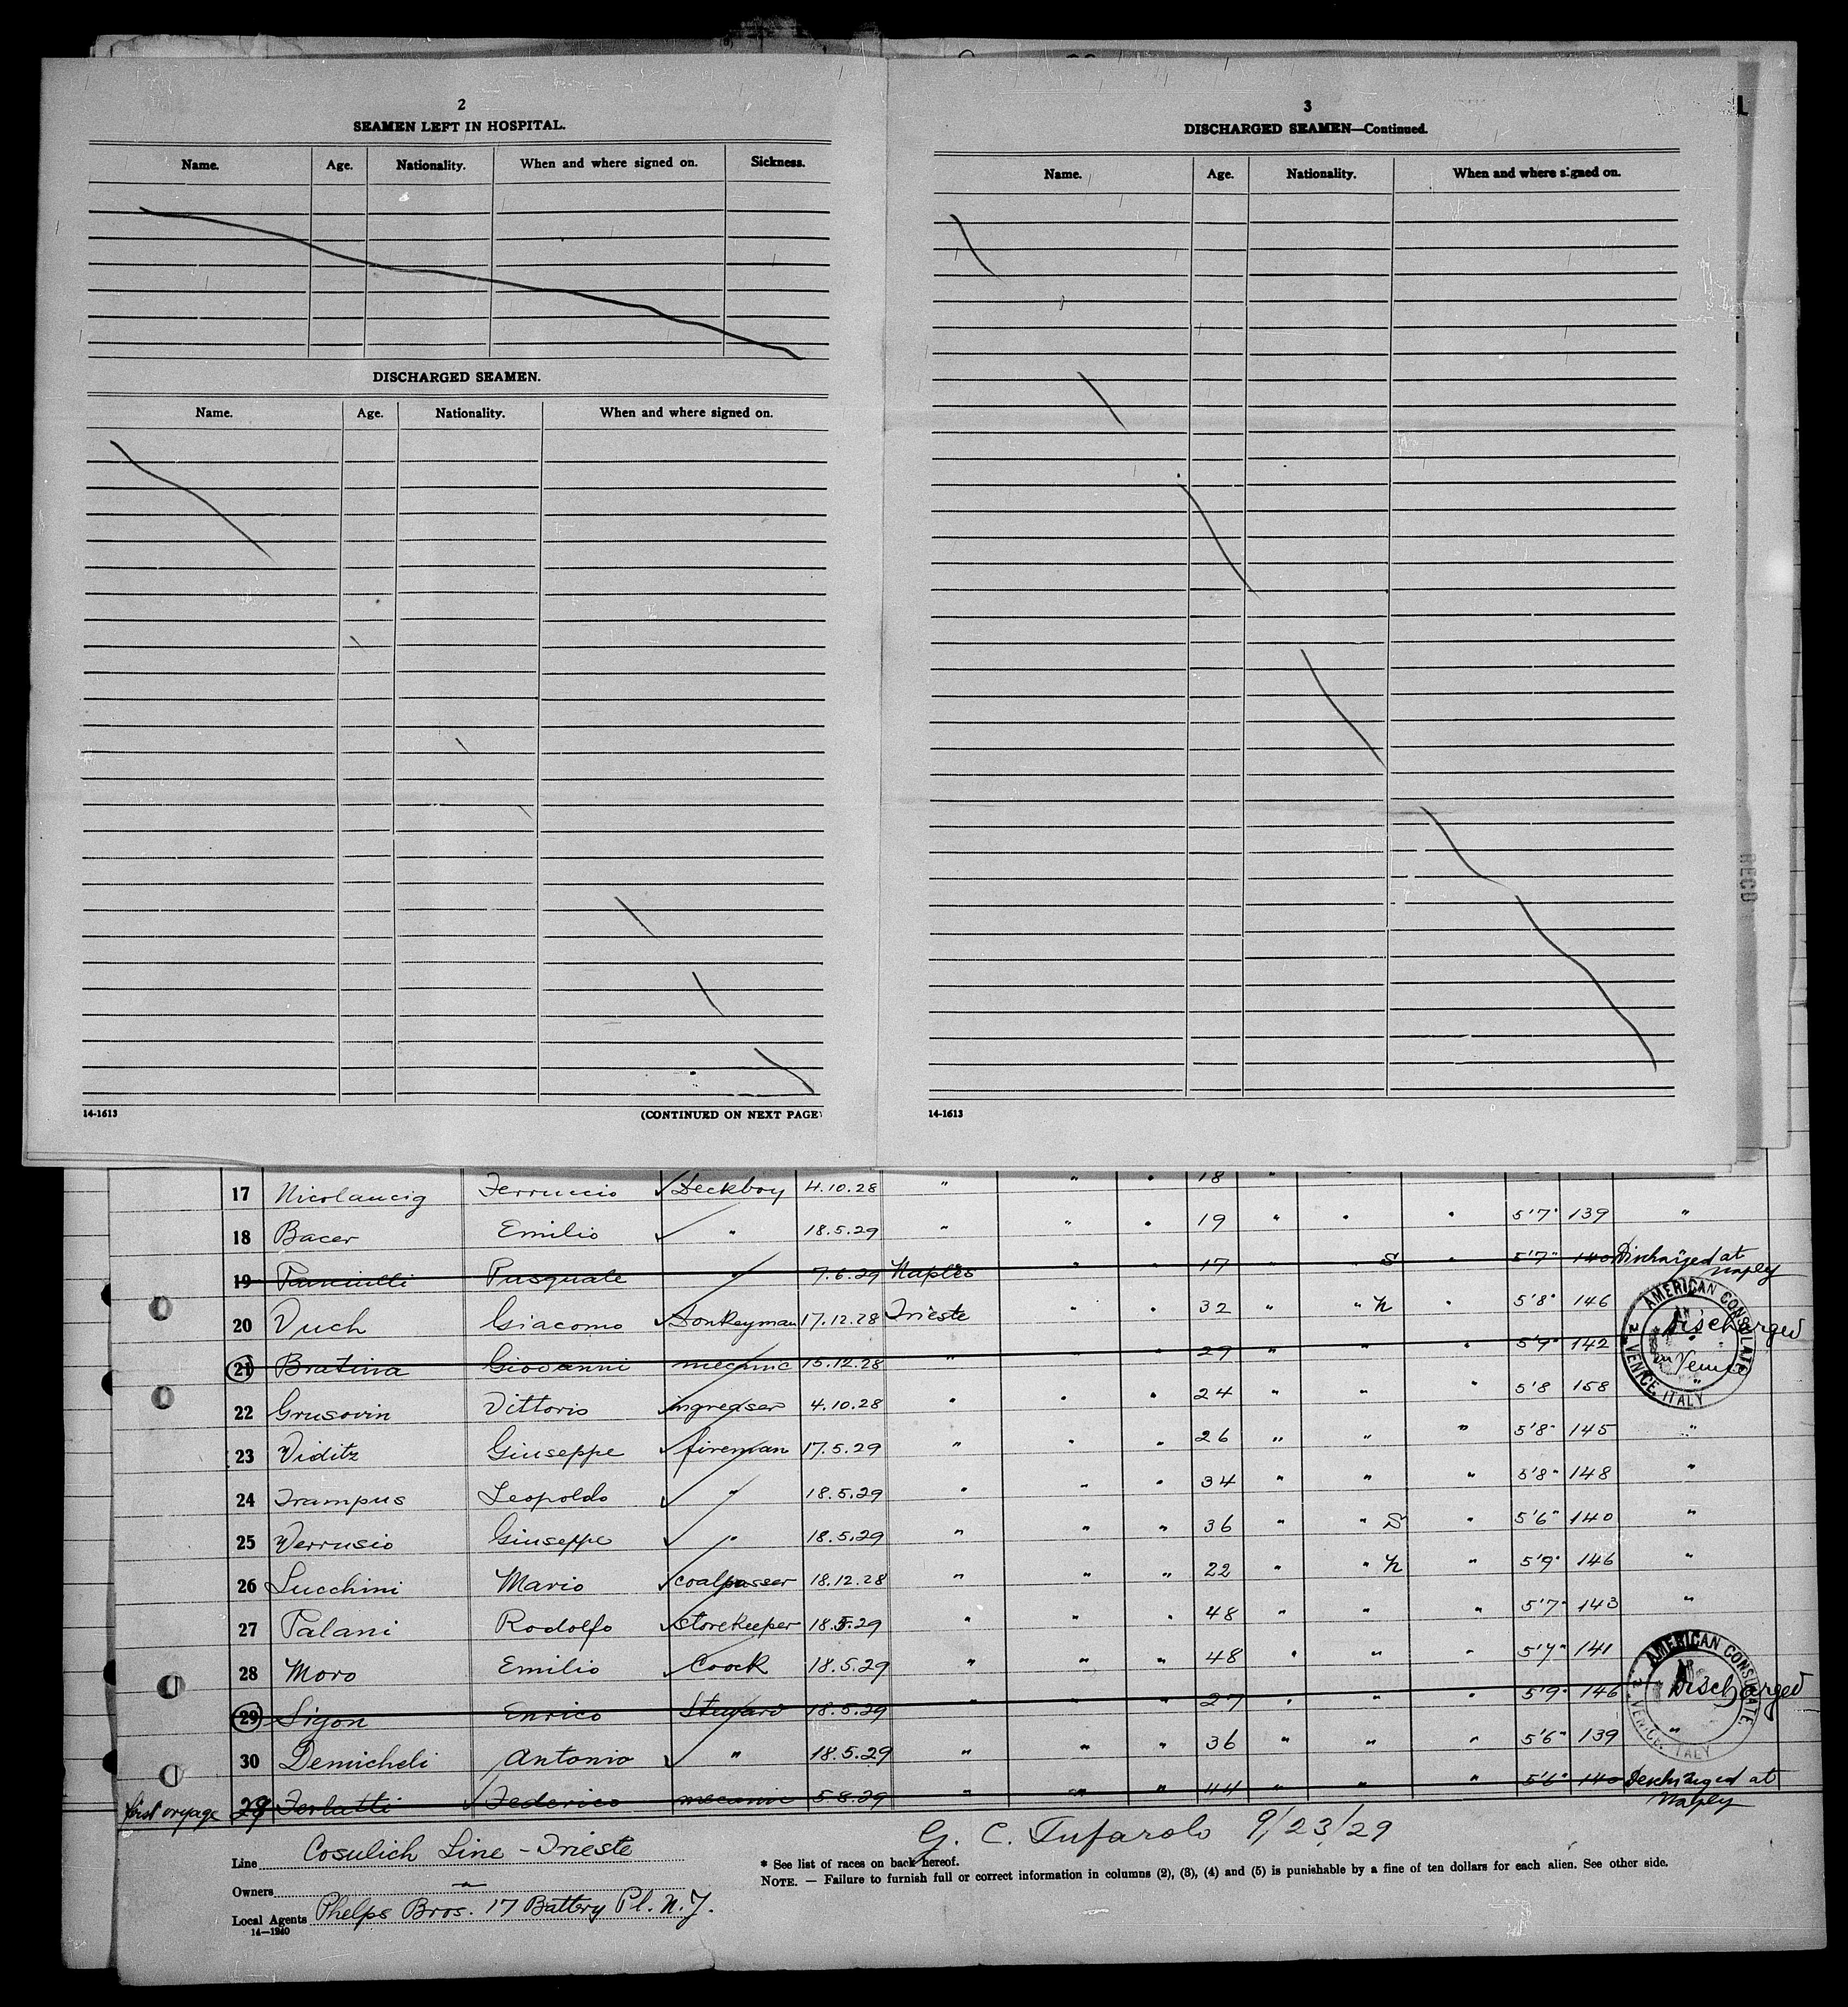 2
SEAMEN LEFT IN HOSPITAL.
Name. Age. Nationality. When and where signed on. Sickness.
DISCHARGED SEAMEN.
Name. Age. Nationality. When and where signed on.
14-1613 (CONTINUED ON NEXT PAGE)
3
DISCHARGED SEAMEN—Continued.
Name. Age. Nationality. When and where signed on.
14-1613
L
RECD
17 Nicolaucig Ferruccio Deckboy 4.10.28 " " " 18 "
18 Bacer Emilio " 18.5.29 " " " 19 " " " 5'7" 139 "
19 Pasquale " 7.6.29 Naples " " 17 " " S " 5'7" 140 Discharged at Naples
20 Vuch Giacomo Donkeyman 17.12.28 Trieste " " 32 " " N " 5'8" 146
21 Bratina Giovanni mecanic 15.12.28 " " " 29 " " " 5'9" 142 Discharged in Venice
22 Grusovin Vittorio ingreaser 4.10.28 " " " 24 " " " 5'8 158 "
23 Viditz Giuseppe fireman 17.5.29 " " " 26 " " " 5'8" 145 "
24 Trampus Leopoldo " 18.5.29 " " " 34 " " " 5'8" 148 "
25 Verrusio Giuseppe " 18.5.29 " " " 36 " " S " 5'6" 140 "
26 Lucchini Mario coalpasser 18.12.28 " " " 22 " " N " 5'9" 146 "
27 Talani Rodolfo Storekeeper 18.5.29 " " " 48 " " " 5'7" 143 "
28 Moro Emilio Coock 18.5.29 " " " 48 " " " 5'7" 141
29 Sigon Enrico Steward 18.5.29 " " " 27 " " " 5'9" 146 Discharged
30 Demicheli Antonio " 18.5.29 " " " 36 " " " 5'6" 139 "
first voyage 29 Ferlatti Federico mecanic 5.8.29 " " " 44 " " " 5'6" 140 Discharged at Naples
AMERICAN CONSULATE VENICE, ITALY
AMERICAN CONSULATE. VENICE. ITALY
G. C. Tufarolo 9/23/29
Line Cosulich Line - Trieste
Owners "
Local Agents Phelps Bros. 17 Battery Pl. N.Y.
14—1240
* See list of races on back hereof.
NOTE. — Failure to furnish full or correct information in columns (2), (3), (4) and (5) is punishable by a fine of ten dollars for each alien. See other side.